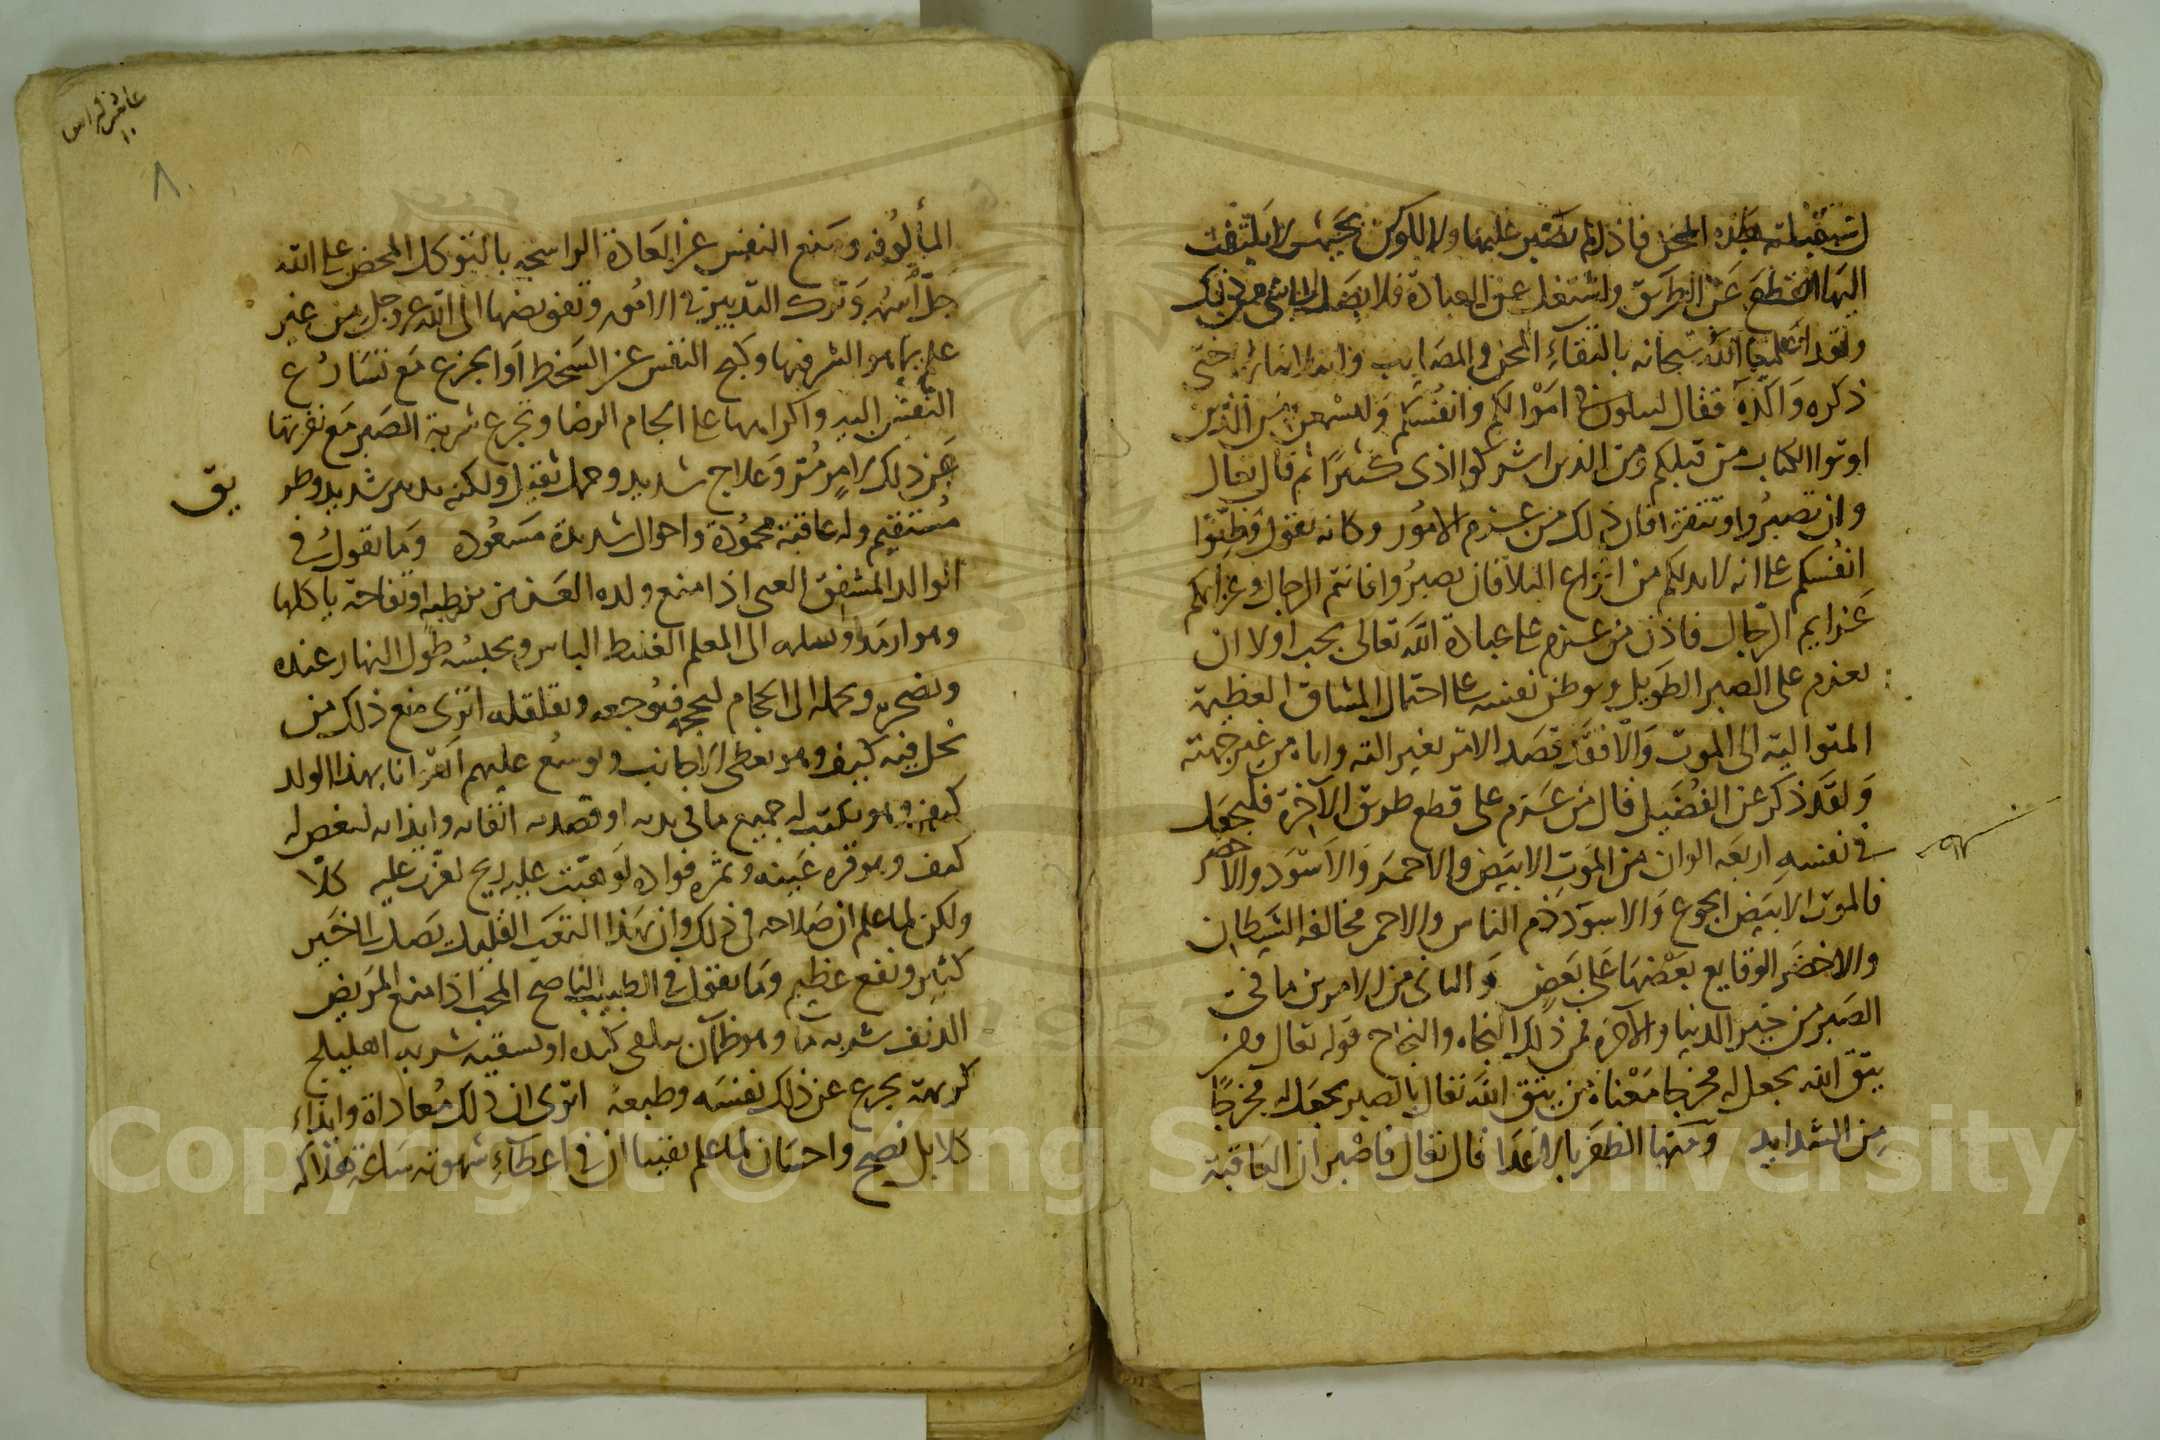 استقبلته هذه المحن فاذا لم يصبر عليها ولا يكون بحيث لا يلتفت
اليها انقطع عن الطريق واشتغل عن العبادة فلا يصل الى شى من ذلك
ولقد اعلمنا الله سبحانه بالتقاء المحن والمصايب حتى
ذكره واكده فقال لتبلون فى اموالكم وانفسكم ولتسمعن من الذين
اوتوا الكتاب من قبلكم ومن الذين اشركوا اذى كثيرًا ثم قال تعالى
وان تصبروا وتتقوا فان ذلك من عزم الامور وكانه يقول وطّنوا
انفسكم على انه لا بد لكم من انواع البلا فان تصبروا فانتم الرجال وعزايمكم
عزايم الرجال فاذن من عزم على عبادة الله تعالى يجب اولا ان
يعزم على الصبر الطويل ويوطن نفسه على احتمال المشاق العظيمة
المتوالية الى الموت والا فقد قصد الامر بغير آلته واتاه من غير جهته
ولقد ذكر عن الفضيل قال من عزم على قطع طريق الآخرة فليجعل
فى نفسه اربعه الوان من الموت الابيض والاحمر والاسود والاخضر
فالموت الابيض الجوع والاسود ذم الناس والاحمر مخالفة الشيطان
والاخضر الوقايع بعضها على بعض والثانى من الامرين ما فى
الصبر من خير الدنيا والآخرة فمن ذلك النجاه والنجاح قوله تعالى ومن
يتق الله يجعل له مخرجا معناه من يتق الله تعالى بالصبر يجعل له مخرجًا
من الشدايد ومنها الظفر بالاعدا قال تعالى فاصبر ان العاقبة
عاشر كراس
١٠
٨٠
المألوفه ومنع النفس عن العادة الراسخه بالتوكل المحض على الله
جل اسمه وترك التدبير فى الامور وتفويضها الى الله عز وجل من غير
علم بما هو السر فيها وكبح النفس عن السخط او الجزع مع تسارع
النفس اليه واكراهها على الجام الرضا وتجرع شربة الصبر مع نفرتها
عن ذلك امر مُر وعلاج شديد وحمل ثقيل ولكنه تدبير شديد وطر
يق
مستقيم وله عاقبة محمودة واحوال شديدة مسعوده وما تقول فى
الوالد المشفق الغنى اذا منع ولده العزيز من رطبه او تفاحة ياكلها
وهو ارمد او سلمه الى المعلم الغليظ الباس ويحبسه طول النهار عنده
ويضجره ويحمله الى الحجام ليحجمه فيوجعه ويقلقله اترى منع ذلك من
بخل فيه كيف وهو يعطى الاجانب ويوسع عليهم اهوانا بهذا الولد
كيف وهو يكتسب له جميع ما فى يده او قصد به اتعابه وايذاه لبغض له
كيف وهو قرة عينه وثمرة فواده لو هبت عليه ريح لعزت عليه كلا
ولكن لما علم ان صلاحه فى ذلك وان بهذا التعب القليل يصل الى خير
كثير ونفع عظيم وما تقول فى الطبيب الناصح المحب اذا منع المريض
الدنف شربة ما وهو ظمآن يتلظى كبده او يسقيه شربة اهليلج
كريهة يجزع عن ذلك نفسه وطبعه اترى ان ذلك معاداة وايذاء
كلا بل نصح واحسان لما علم يقينا ان فى اعطاء شهوته ساعة هلاكه